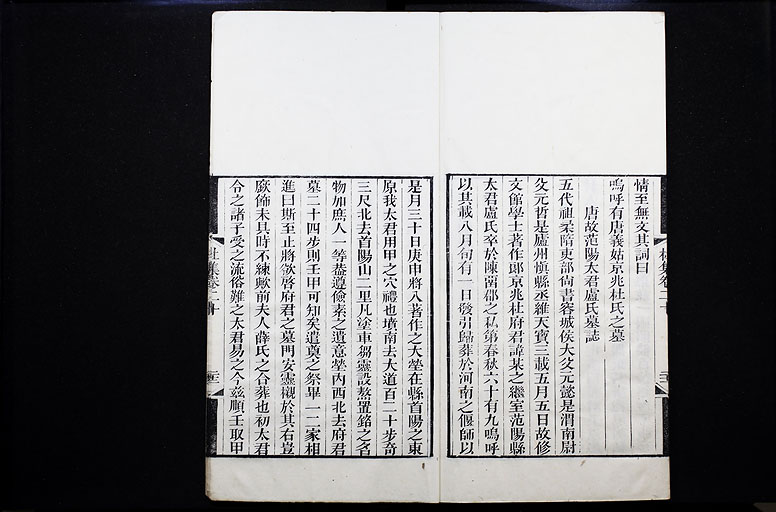 情至無文其詞曰
嗚呼有唐義姑京兆杜氏之墓
唐故范陽太君盧氏墓誌
五代祖柔隋吏部尙書容城侯大父元懿是渭南尉
父元哲是廬州愼縣丞維天寶三載五月五日故修
文館學士著作郎京兆杜府君諱某之繼室范陽縣
太君盧氏卒於陳留郡之私第春秋六十有九嗚呼
以其載八月旬有一日發引歸葬於河南之偃師以
是月三十日庚申將入著作之大塋在縣首陽之東
原我太君用甲之穴禮也墳南去大道百二十步奇
三尺北去首陽山二里凡塗車芻靈設熬置銘之名
物加庶人一等葢遵儉素之遺意塋内西北去府君
墓二十四步則壬甲可知矣遣奠之祭畢一二家相
進曰斯至止將欲啓府君之墓門安靈櫬於其右豈
厥飾未具時不練歟前夫人薛氏之合葬也初太君
令之諸子受之流俗難之太君易之今茲順壬取甲
杜集卷二十